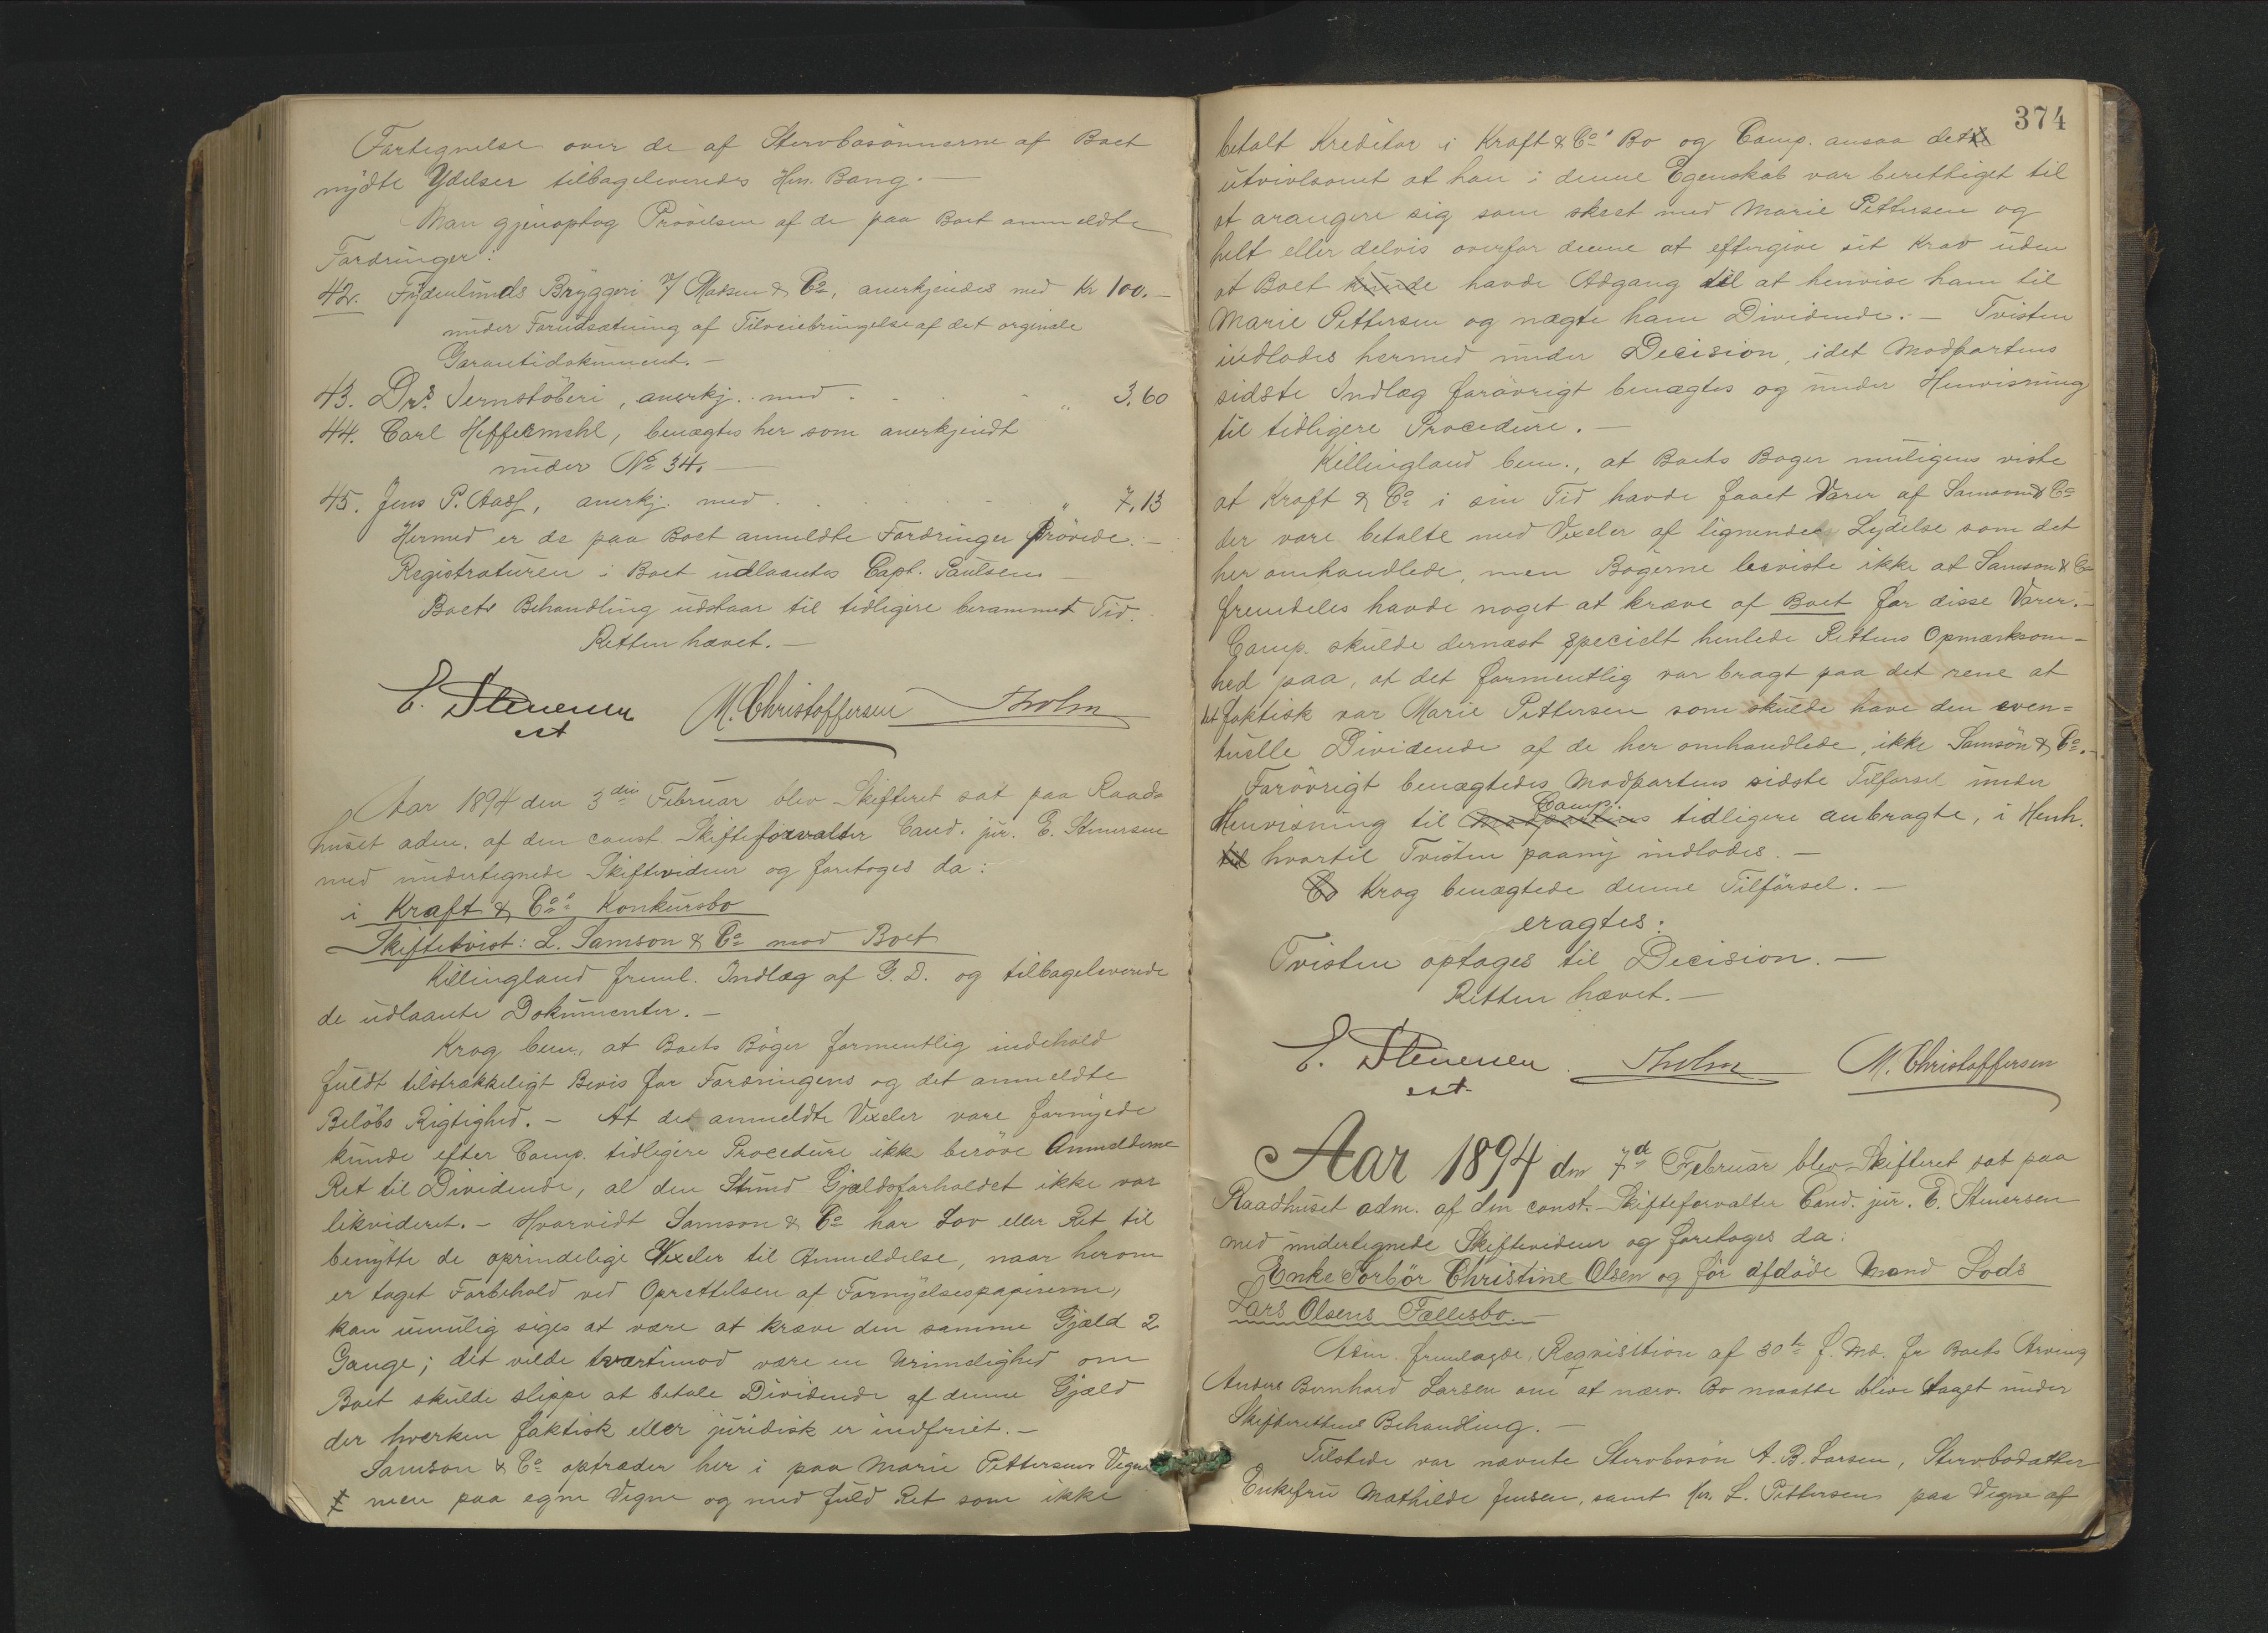 Fortegnelse over de af Stervbosönnerne af Boet
nydte Ydelser tilbageleveredes Hrr. Bang. —
Man gjenoptog Prövelsen af de paa Boet anmeldte
Fordringer:
42. Frydenlunds Bryggeri v/ Madsen & Co, anerkjendes med Kr 100. —
under Forudsætning af Tilveiebringelse af det orginale
Garantidokument. —
43. Drs. Jernstöberi, anerkj. med . . . . " 3,60
44. Carl Heffermehl, benægtes her som anerkjendt
under No 34. —
45. Jens P. Aass, anerkj. med . . . . " 7,13
Hermed er de paa Boet anmeldte Fordringer Prövede. —
Registraturen i Boet udlaantes Capt. Paulsen —
Boets Behandling udstaar til tidligere berammet Tid.
Retten hævet. —
E. Stenersen M. Christoffersen Tholm
cst
Aar 1894 den 3die Februar blev Skifteret sat paa Raad-
huset adm. af den const. Skifteforvalter Cand. jur. E. Stenersen
med undertegnede Skiftevidner og foretoges da:
i Kraft & Co's Konkursbo
Skiftetvist: L. Samson & Co mod Boet
Killingland freml. Indlæg af G. D. og tilbageleverede
de udlaante Dokumenter. —
Krog bem., at Boets Böger formentlig indehold
fuldt tilstrækkeligt Bevis for Fordringens og det anmeldte
Belöbs Rigtighed. — At de anmeldte Vexeler vare fornyede
kunde efter Comp. tidligere Procedure ikke beröve Anmelderne
Ret til Dividende, al den Stund Gjældsforholdet ikke var
likvideret. — Hvorvidt Samson & Co har Lov eller Ret til
benytte de oprindelige Vexeler til Anmeldelse, naar herom
er taget Forbehold ved Oprettelsen af Fornyelsespapirerne,
kan umulig siges at være at kræve den samme Gjæld 2
Gange; det vilde tvertimod være en Urimelighed om
Boet skulde slippe at betale Dividende af denne Gjæld
der hverken faktisk eller juridisk er indfriet. —
Samson & Co optræder her i paa Marie Pettersens Vegne
men paa egne Vegne og med fuld Ret som ikke
374
betalt Kreditor i Kraft & Co's Bo og Comp. ansaa det
utvivlsomt at han i denne Egenskab var berettiget til
at arangere sig som skeet med Marie Pettersen og
helt eller delvis overfor denne at eftergive sit Krav uden
at Boet kunde havde Adgang til at henvise ham til
Marie Pettersen og nægte ham Dividende. — Tvisten
indlodes hermed under Decision, idet Modpartens
sidste Indlæg forövrigt benægtes og under Henvisning
til tidligere Procedure. —
Killingland bem., at Boets Böger muligens viste
at Kraft & Co i sin Tid havde faaet Varer af Samson & Co
der vare betalte med Vexeler af lignende Lydelse som det
her omhandlede, men Bögerne beviste ikke at Samson & Co
fremdeles havde noget at kræve af Boet for disse Varer. —
Comp. skulde dernæst specielt henlede Rettens Opmærksom-
hed paa, at det formentlig var bragt paa det rene at
det faktisk var Marie Pettersen som skulde have den even-
tuelle Dividende af de her omhandlede, ikke Samson & Co. —
Forövrigt benægtedes Modpartens sidste Tilförsel under
Comp.
Henvisning til Modpartens tidligere anbragte, i Henh.
til hvortil Tvisten paany indlodes. —
Co Krog benægtede denne Tilförsel. —
eragtes:
Tvisten optages til Decision. —
Retten hævet. —
E. Stenersen Tholm M. Christoffersen
cst.
Aar 1894 den 7de Februar blev Skifteret sat paa
Raadhuset adm. af den const. Skifteforvalter Cand. jur. E. Stenersen
med undertegnede Skiftevidner og foretoges da:
Enke Torbör Christine Olsen og för afdöde Mand Lods
Lars Olsens Fællesbo. —
Adm. fremlagde Reqvisition af 30te f. Md. fr Boets Arving
Anders Bernhard Larsen om at nærv. Bo maatte blive taget under
Skifterettens Behandling. —
Tilstede var nævnte Stervbosön A. B. Larsen, Stervbodatter
Enkefru Mathilde Jensen, samt Hr. L. Pettersen paa Vegne af